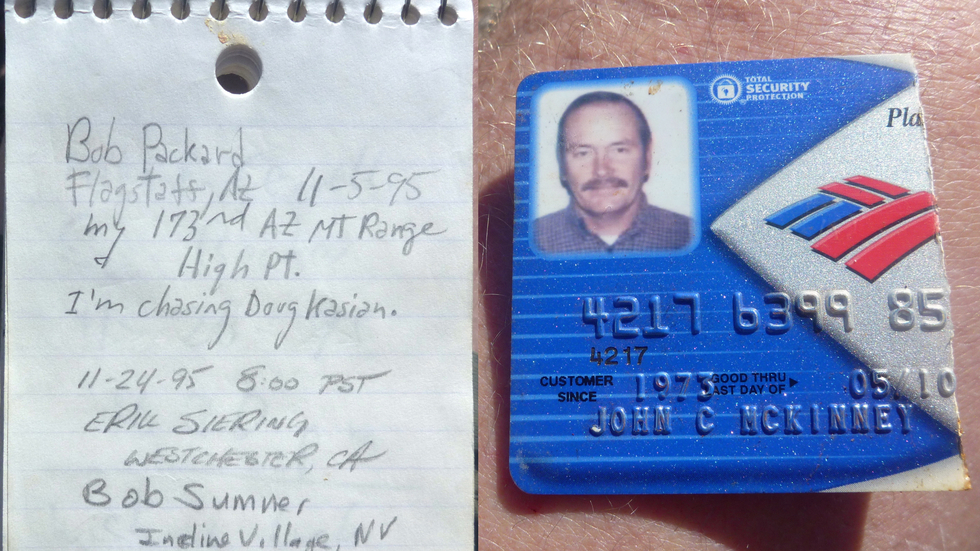 Bob Packard
Flagstaff, AZ 11-5-95
my 173rd AZ MT Range
High Pt.
I'm chasing Doug Kasian.
11-24-95 8:00 PST
ERIK SIERING
WESTCHESTER, CA
Bob Sumner
Incline Village, NV
TOTAL
SECURITY
PROTECTION
Pla
4217 6399 85
4217
CUSTOMER SINCE 1973 GOOD THRU LAST DAY OF 05/10
JOHN C MCKINNEY